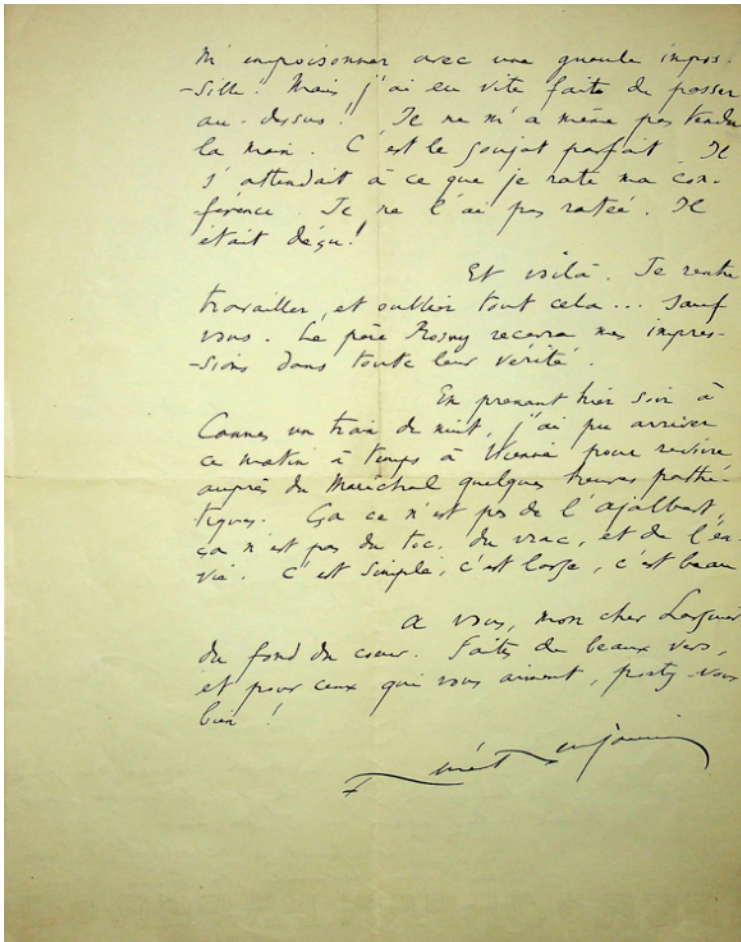 m'empoisonner avec une gueule impos-
-sible! Mais j'ai eu vite faite de passer
au-dessus! Il ne m'a même pas tendu
la main. C'est le goujat parfait. Il
s'attendait à ce que je rate ma con-
férence. Je ne l'ai pas ratée. Il
était déçu!
Et voilà. Je rentre
travailler, et oublier tout cela... sauf
vous. Le père Rosny recevra mes impres-
-sions dans toute leur vérité.
En prenant hier soir à
Cannes un train de nuit, j'ai pu arriver
ce matin à temps à Vienne pour revivre
auprès du Maréchal quelques heures pathé-
tiques. Ça ce n'est pas de l'Ajalbert,
ça n'est pas du toc, du vrac, et de l'en-
vie. C'est simple, c'est large, c'est beau
A vous, mon cher Larguier
du fond du coeur. Faites de beaux vers,
et pour ceux qui vous aiment, portez-vous
bien!
René Benjamin